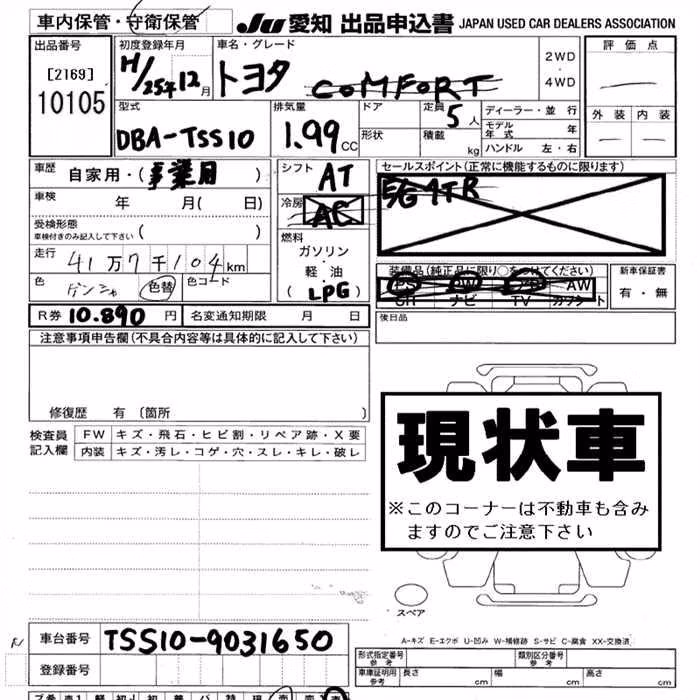 車内保管・守衛保管 JU 愛知 出品申込書 JAPAN USED CAR DEALERS ASSOCIATION
出品番号 初度登録年月 車名・グレード 2WD ・ 4WD 評価点
[2169] H/25年12月 トヨタ COMFORT
10105 型式 排気量 ドア 定員 5人 ディーラー・並行 外装 内装
DBA-TSS10 1.99CC 形状 積載 kg モデル年式 年
ハンドル 左・右
車歴 自家用・(事業用) シフト AT セールスポイント(正常に機能するものに限ります)
車検 年 月( 日) 冷房 AC 5G 1TR
受検形態 車検付きのみ記入して下さい ( )
燃料 ガソリン・軽油 (LPG)
走行 41万7千104km 装備品(純正品に限り○をつけてください) 新車保証書
色 ゲンシャ 色替 色コード PS PW AW 有・無
ナビ TV
R券 10.890円 名変通知期限 月 日 後日品
注意事項申告欄(不具合内容等は具体的に記入して下さい)
修復歴 有 〔箇所 〕
検査員記入欄 FW キズ・飛石・ヒビ割・リペア跡・X要
内装 キズ・汚レ・コゲ・穴・スレ・キレ・破レ
現状車
※このコーナーは不動車も含み
ますのでご注意下さい
スペア
A-キズ E-エクボ U-凹ミ W-補修跡 S-サビ C-腐食 XX-交換済
車台番号 TSS10-9031650 形式指定番号 参考 類別区分番号 参考
登録番号 車庫証明用 参考 長さ cm 幅 cm 高さ cm